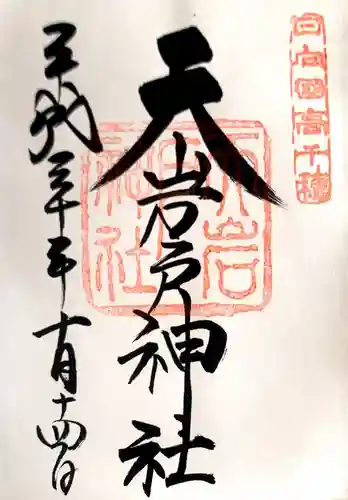 日向國高千穂
天岩戸神社
天岩戸神社
平成三十年十一月十四日